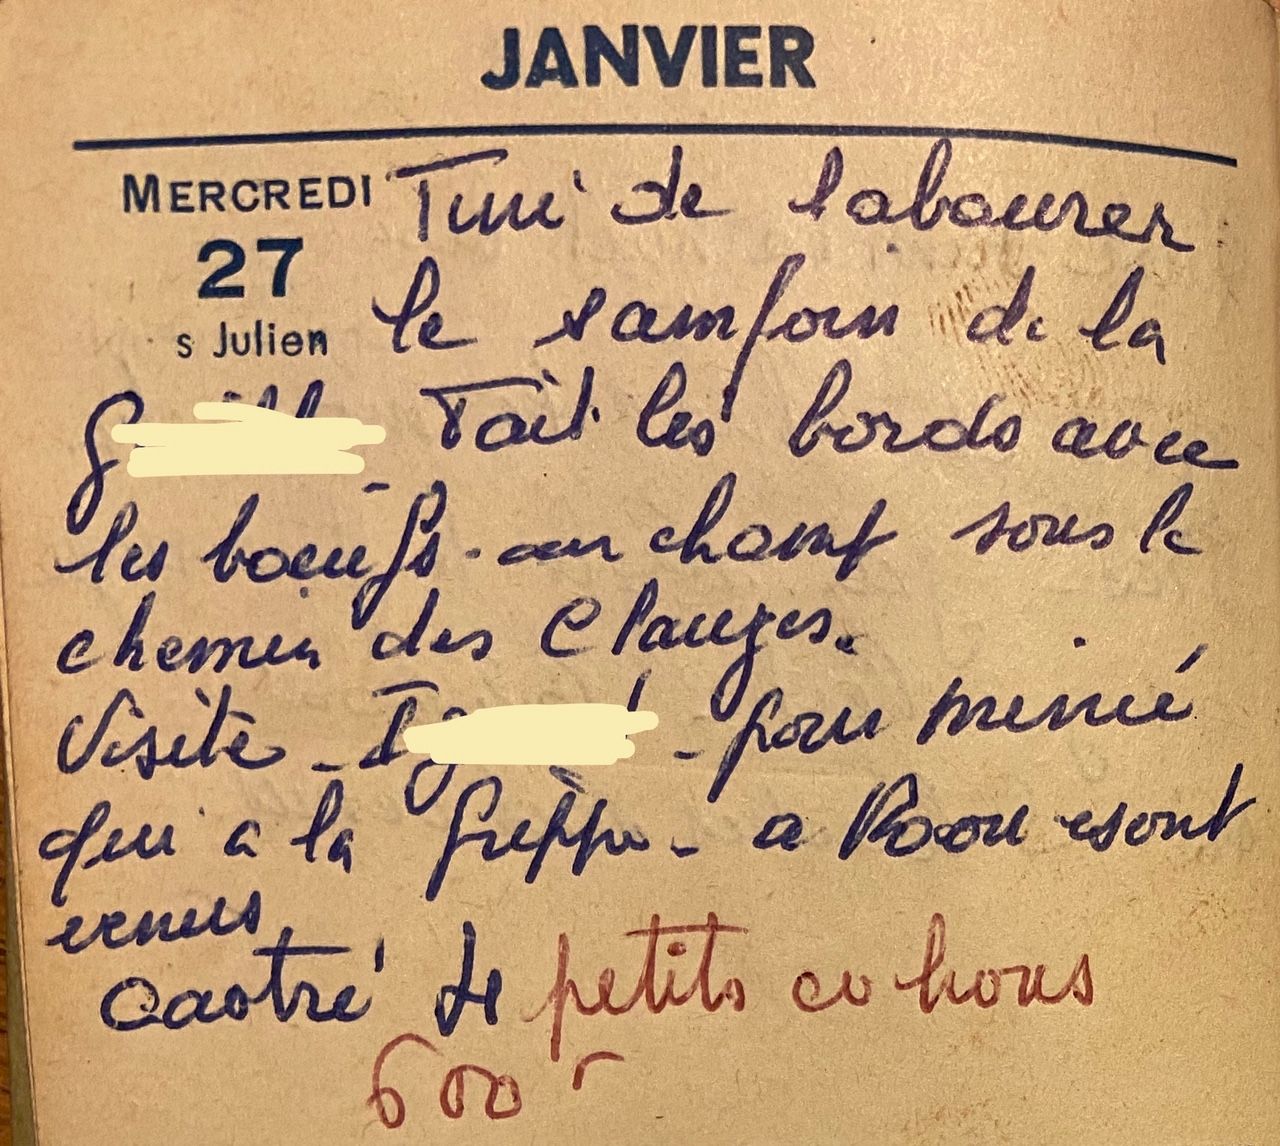 JANVIER
MERCREDI Fini de labourer
27
s Julien le samfoin de la
Fait les bords avec
les boeufs - au champ sous le
chemin des Clauzes.
Visite - - pour mémé
qui a la Grippe - a
venus
Castré 4 petits cochons
600 F